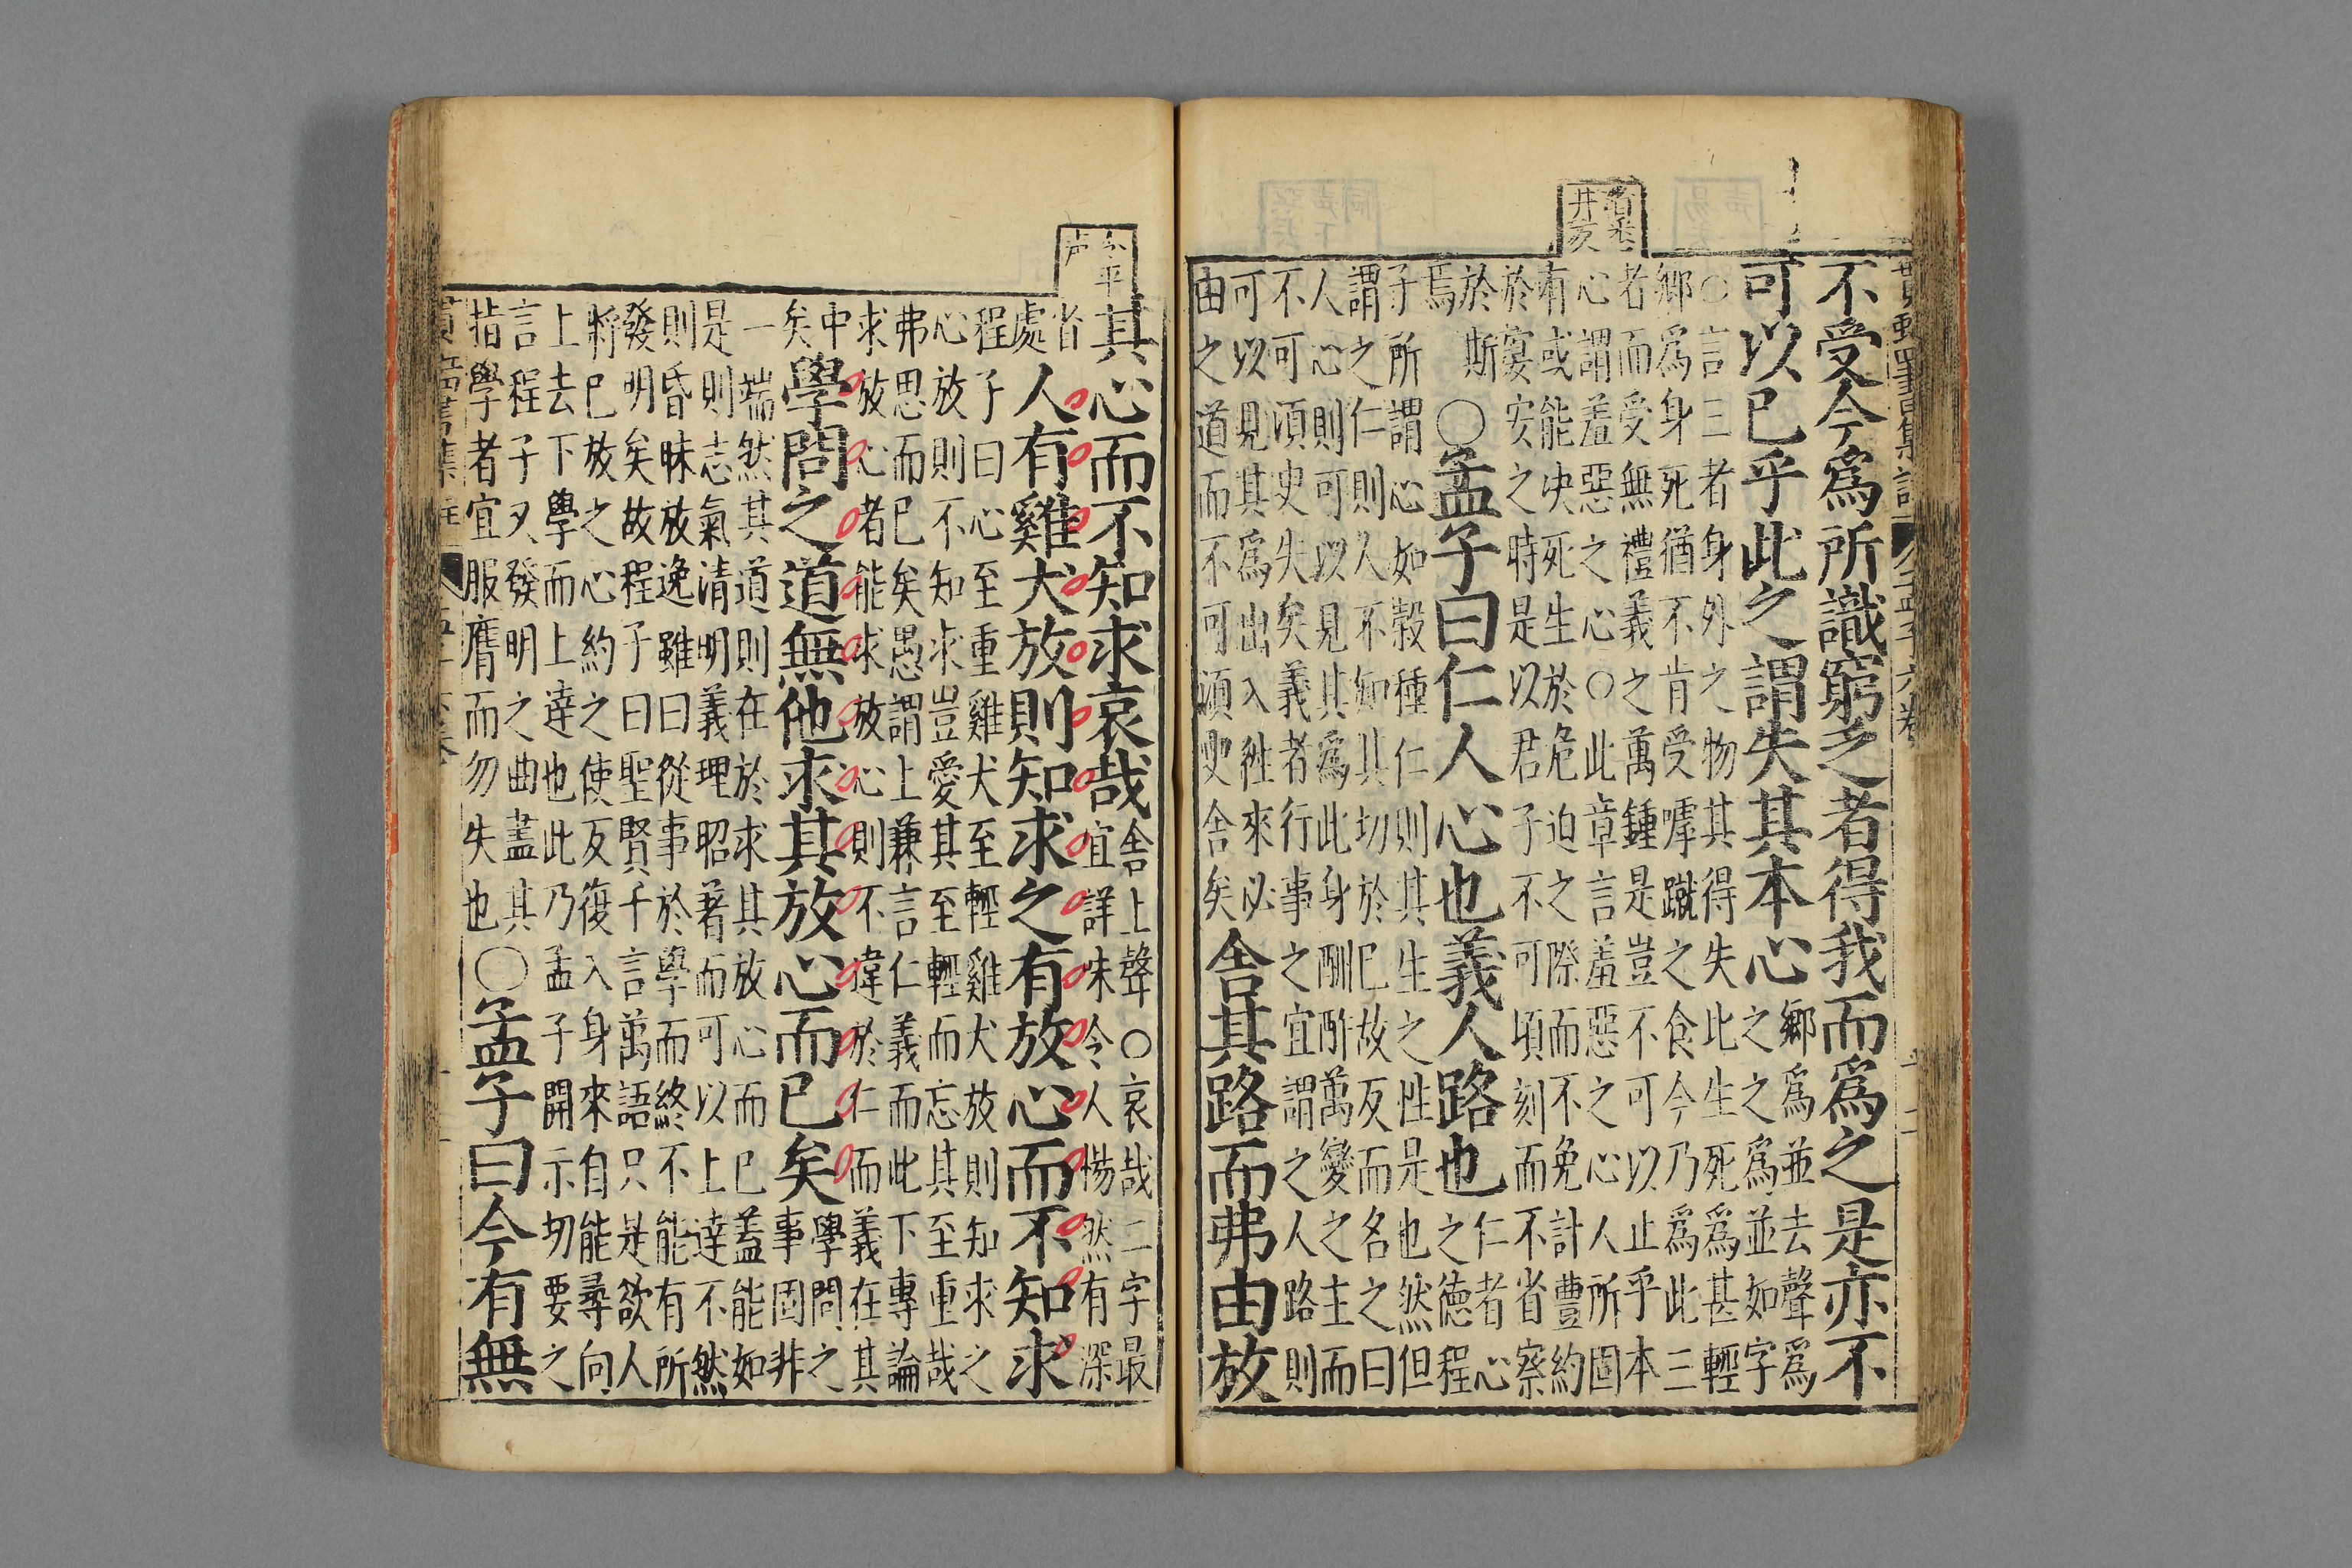 省悉
井反
不受今爲所識窮乏者得我而爲之是亦不
可以已乎此之謂失其本心
鄉爲並去聲爲
之之爲並如字
○言三者身外之物其得失此生死爲甚輕
鄉爲身死猶不肯受嘑蹴之食今乃爲此三
者而受無禮義之萬鍾是豈不可以止乎本
心謂羞惡之心○此章言羞惡之心人所固
有或能决死生於危迫之際而不免計豐約
於宴安之時是以君子不可頃刻而不省察
於斯
焉
○孟子曰仁人心也義人路也
仁者心
之德程
子所謂心如穀種仁則其生之性是也然但
謂之仁則人不知其切於已故反而名之曰
人心則可以見其爲此身酬酢萬變之主而
不可須臾失矣義者行事之宜謂之人路則
可以見其爲出入徃來必
由之道而不可須臾舍矣
舍其路而弗由放
令平
声
其心而不知求哀哉
舍上聲○哀哉二字最
宜詳味令人惕然有深
省
處
人有雞犬放則知求之有放心而不知求
程子曰心至重雞犬至輕雞犬放則知求之
心放則不知求豈愛其至輕而忘其至重哉
弗思而已矣愚謂上兼言仁義而此下專論
求放心者能求放心則不違於仁而義在其
中
矣
學問之道無他求其放心而已矣
學問之
事固非
一端然其道則在於求其放心而已蓋能如
是則志氣清明義理昭著而可以上達不然
則昏昧放逸雖曰從事於學而終不能有所
發明矣故程子曰聖賢千言萬語只是欲人
將已放之心約之使反復入身來自能尋向
上去下學而上達也此乃孟子開示切要之
言程子又發明之曲盡其
指學者宜服膺而勿失也
○孟子曰今有無